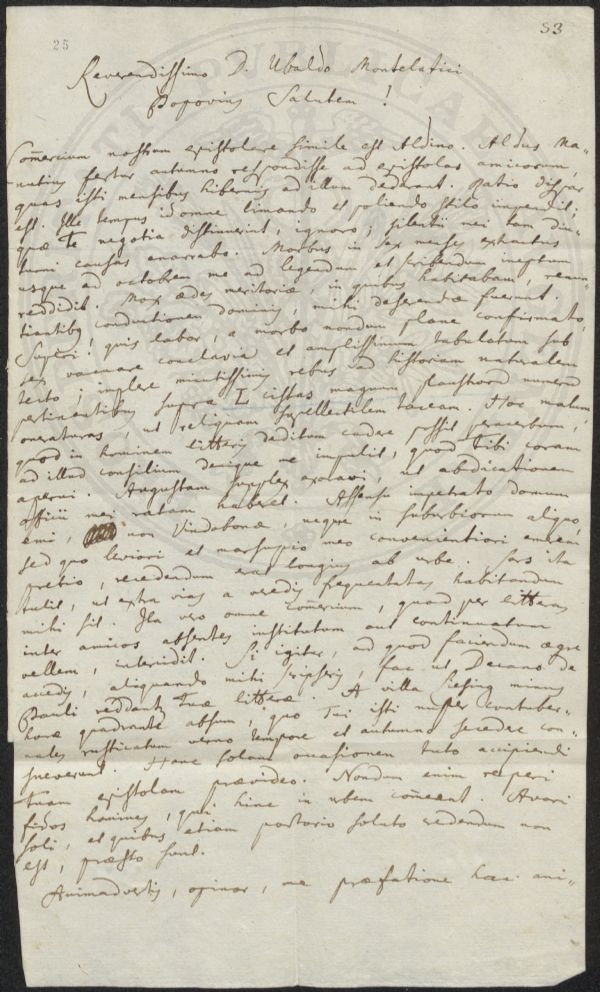 53
25
Reverendissimo D. Ubaldo Montelatici
Popovius Salutem!
Com̄ercium nostrum epistolare simile est Aldino. Aldus Ma-
nutius fertur autumno respondisse ad epistolas amicorum,
quas isti mensibus hibernis ad illum dederant. Ratio dispar
est. Ille tempus id omne limando et poliendo stilo impendit;
quæ Te negotia distinuerint, ignoro; silentii mei tam diu-
turni causas enarrabo. Morbus in sex menses extractus
usque ad octobrem me ad legendum et scribendum ineptum
reddidit. Mox ædes meritoriæ, in quibus habitabam, renun-
tiantibus conductionem dominis, mihi deserendæ fuerunt.
Superi! quis labor, a morbo nondum plane confirmato,
sex vacuare conclavia et amplissimum tabulatum sub
tecto; implere minutissimis rebus ad historiam naturalem
pertinentibus supra L cistas magnum plaustrorum numerum
oneraturas, ut reliquam supellectilem taceam. Hoc malum,
quod in hominem litteris deditum cadere possit peracerbum,
ad illud consilium denique me impulit, quod Tibi coram
aperui. Augustam supplex exoravi, ut abdicationem
officii mei ratam haberet. Assensu impetrato domum
emi, non Vindobonæ, neque in suburbiorum aliquo,
sed quo leviori et marsupio meo convenientiori emerem
pretio, recedendum erat longius ab urbe. Sors ita
tulit, ut extra vias a redis frequentatas habitandum
mihi sit. Ita vero omne com̄ercium, quod per litteras
inter amicos absentes institutum aut continuatum
vellem, intercidit. Si igitur, ad quod faciendum ægre
accedis, aliquando mihi scripseris, fac ut Decano de
Pauli reddantur Tuæ litteræ. A villa Liesing minus
horæ quadrante absum, quo Tui isti nuper contuber-
nales rusticatum verno tempore et autumno secedere con-
sueverunt. Hanc solam occasionem tuto accipiendi
Tuam epistolam prævideo. Nondum enim reperi
fidos homines, qui hinc in urbem com̄eent. Avari
soli, et quibus etiam portorio soluto credendum non
est, præsto sunt.
Animadvertis, opinor, me præfatione hac ani-